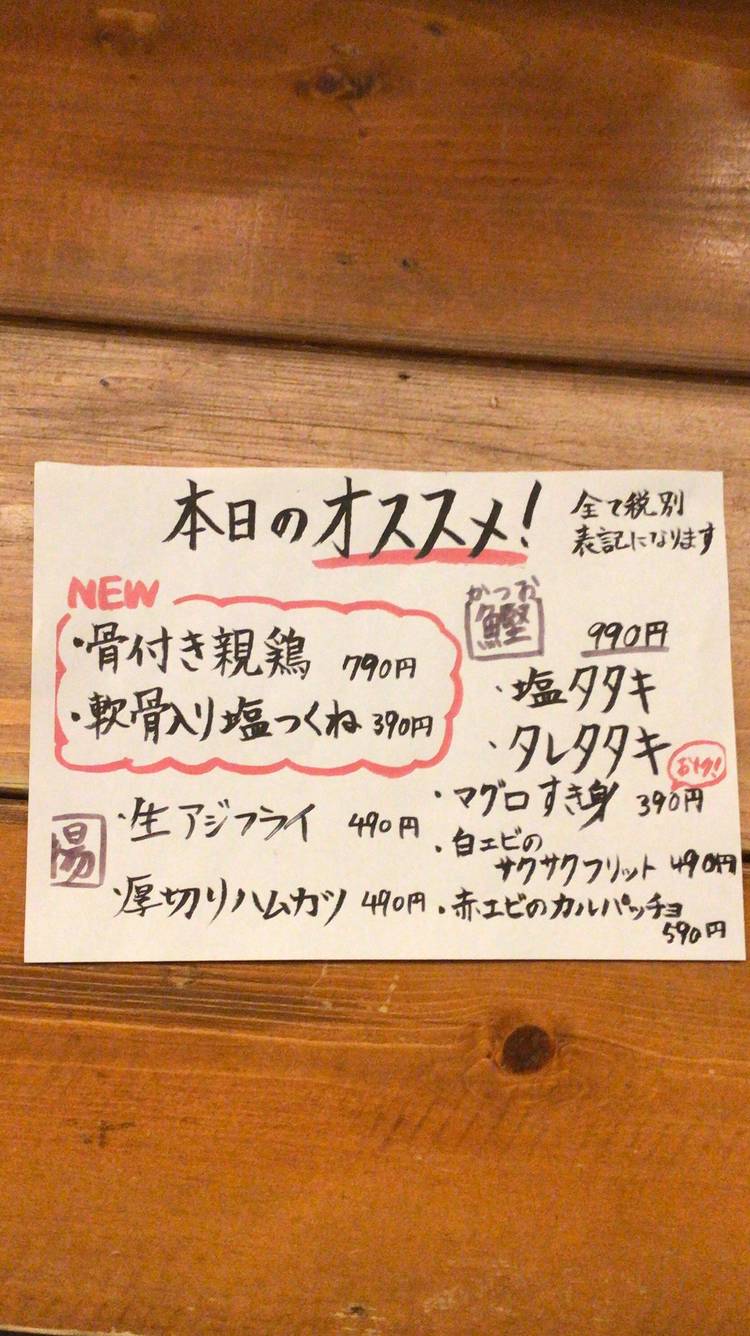 本日のオススメ!
全て税別
表記になります
NEW
・骨付き親鶏 790円
・軟骨入り塩つくね 390円
かつお
鰹 990円
・塩タタキ
・タレタタキ
・生アジフライ 490円
・厚切りハムカツ 490円
おトク!
・マグロすき身 390円
・白エビの
サクサクフリット 490円
・赤エビのカルパッチョ
590円